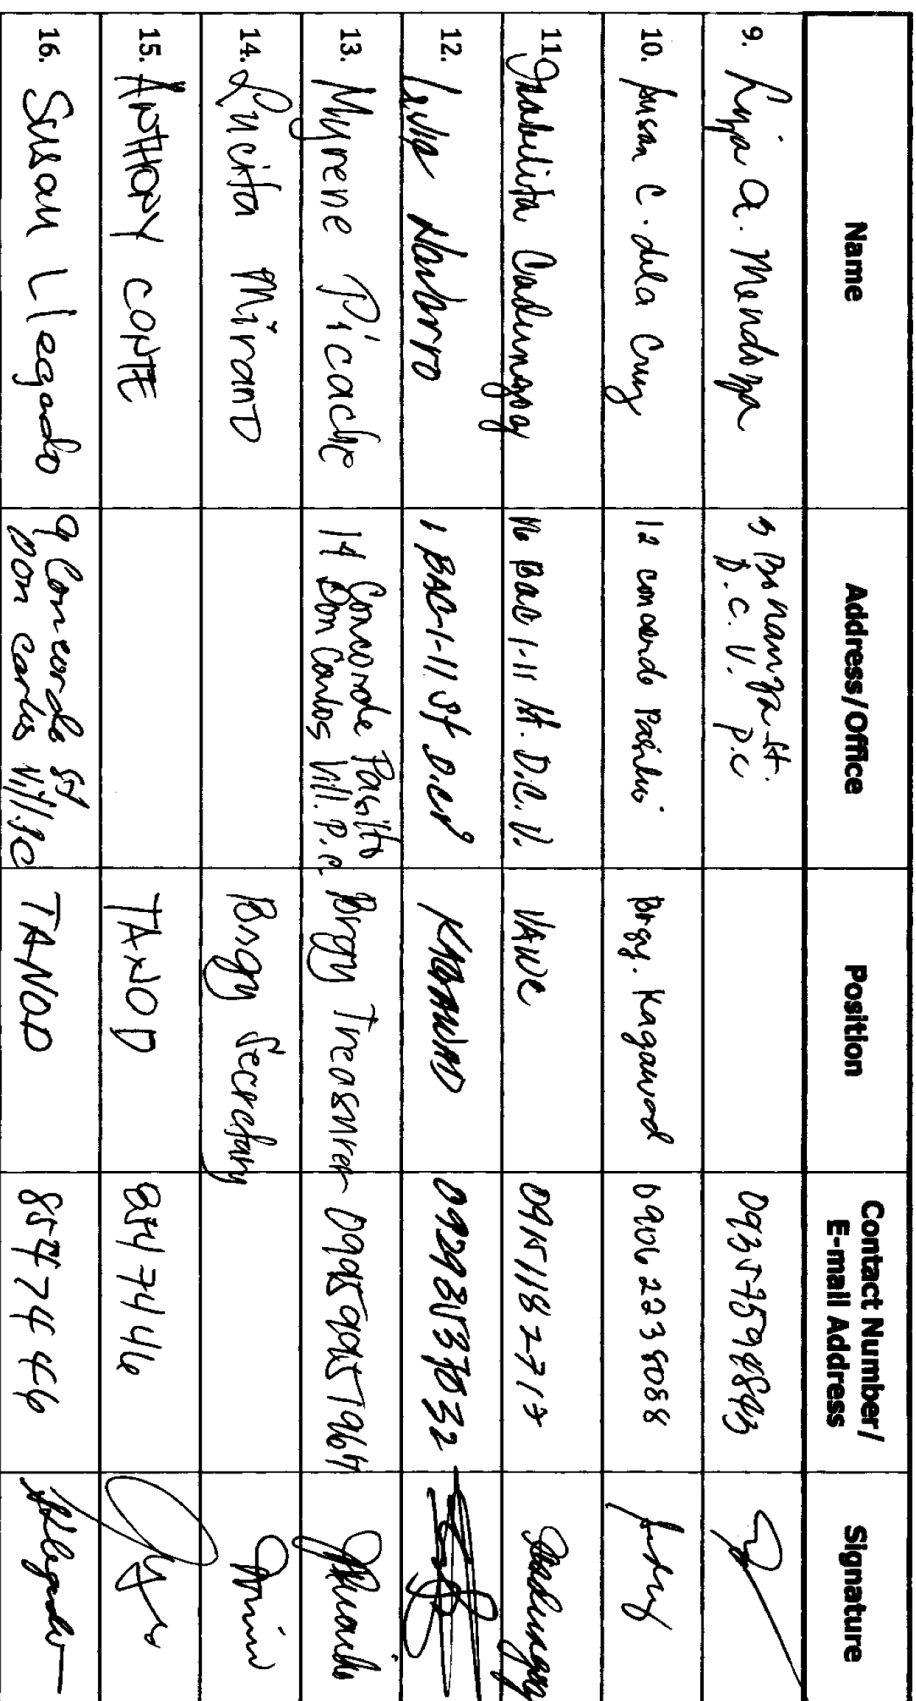 Name Address/Office Position Contact Number/ E-mail Address Signature
9. Mendoza St. D.C.V. P.C
10. Susan C. dela Cruz 12 concorde Brgy. Kagawad 09062238088
11. Cadungog BAC 1-11 St. D.C.V. VAWC 09151182717
12. Navarro 1 BAC-1-11 St D.C.V KAGAWAD
13. Myrene Picache 14 Concorde Pasilto Don Carlos Vill. P.C. Brgy Treasurer
14. Lucita Mirano Brgy Secretary
15. ANTHONY CONTE TANOD 8547446
16. Susan Llegado 9 Concorde St Don Carlos Vill. P.C TANOD 8547446